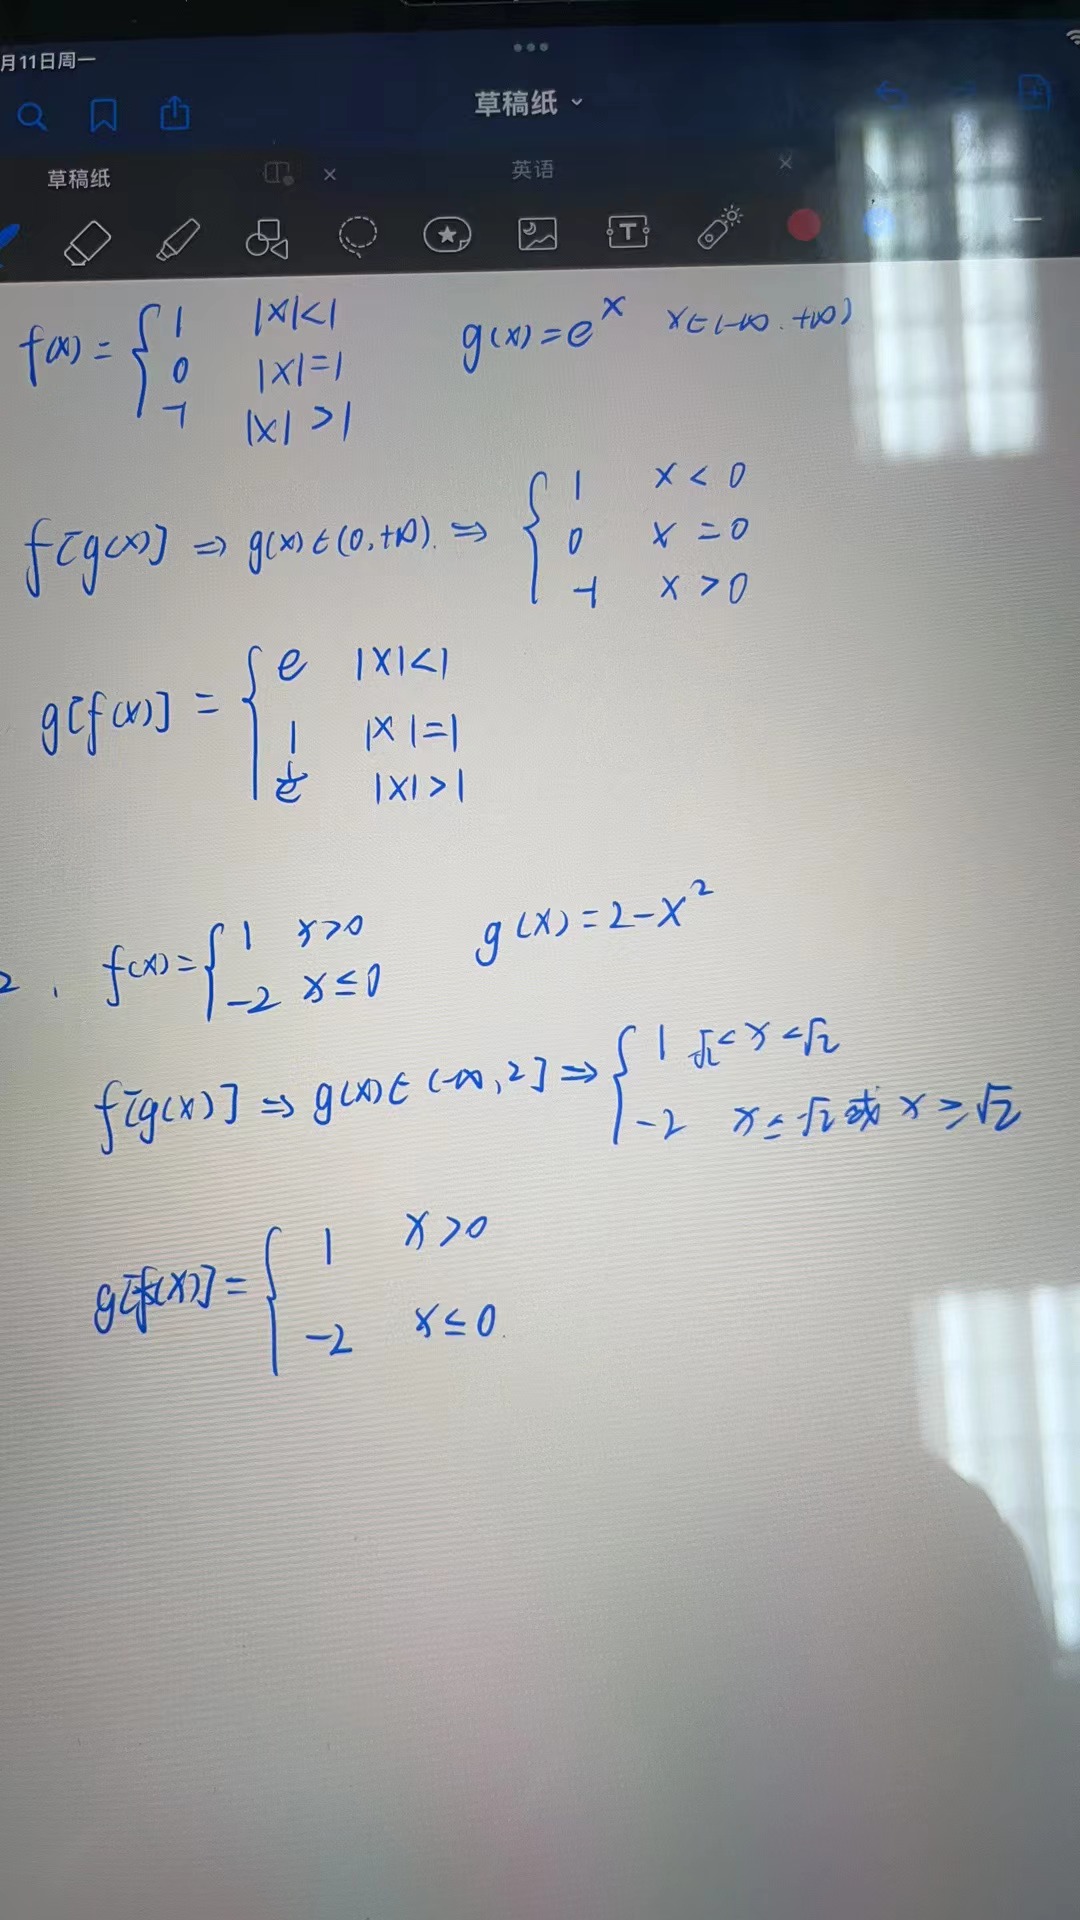 月11日周一
草稿纸
草稿纸
英语
f(x)={1 |x|<1
0 |x|=1
-1 |x|>1
g(x)=e^x x∈(-∞.+∞)
f[g(x)]⇒g(x)∈(0,+∞).⇒{1 x<0
0 x=0
-1 x>0
g[f(x)]={e |x|<1
1 |x|=1
1/e |x|>1
2. f(x)={1 x>0
-2 x≤0
g(x)=2-x²
f[g(x)]⇒g(x)∈(-∞,2]⇒{1 √2<x<√2
-2 x≤-√2或x≥√2
g[f(x)]={1 x>0
-2 x≤0.